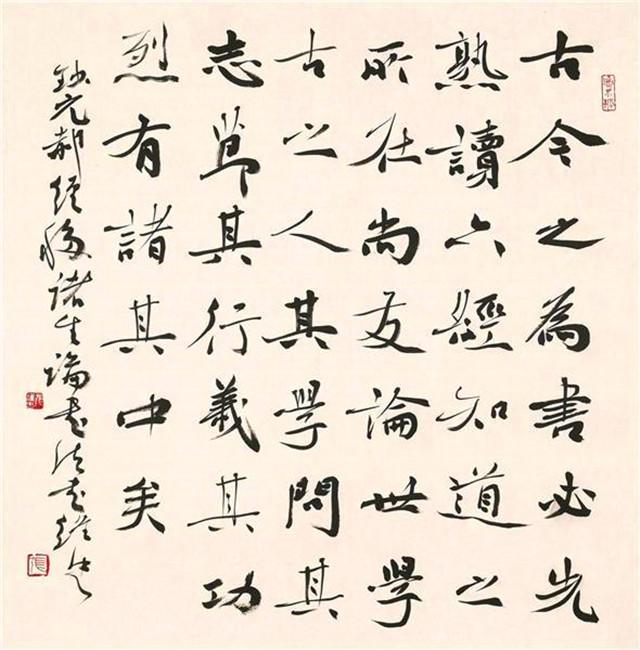 古今之為書必先
熟讀六經知道之
所在尚友論世學
古之人其學問其
志節其行義其功
烈有諸其中矣
元郝經移諸生論書法書